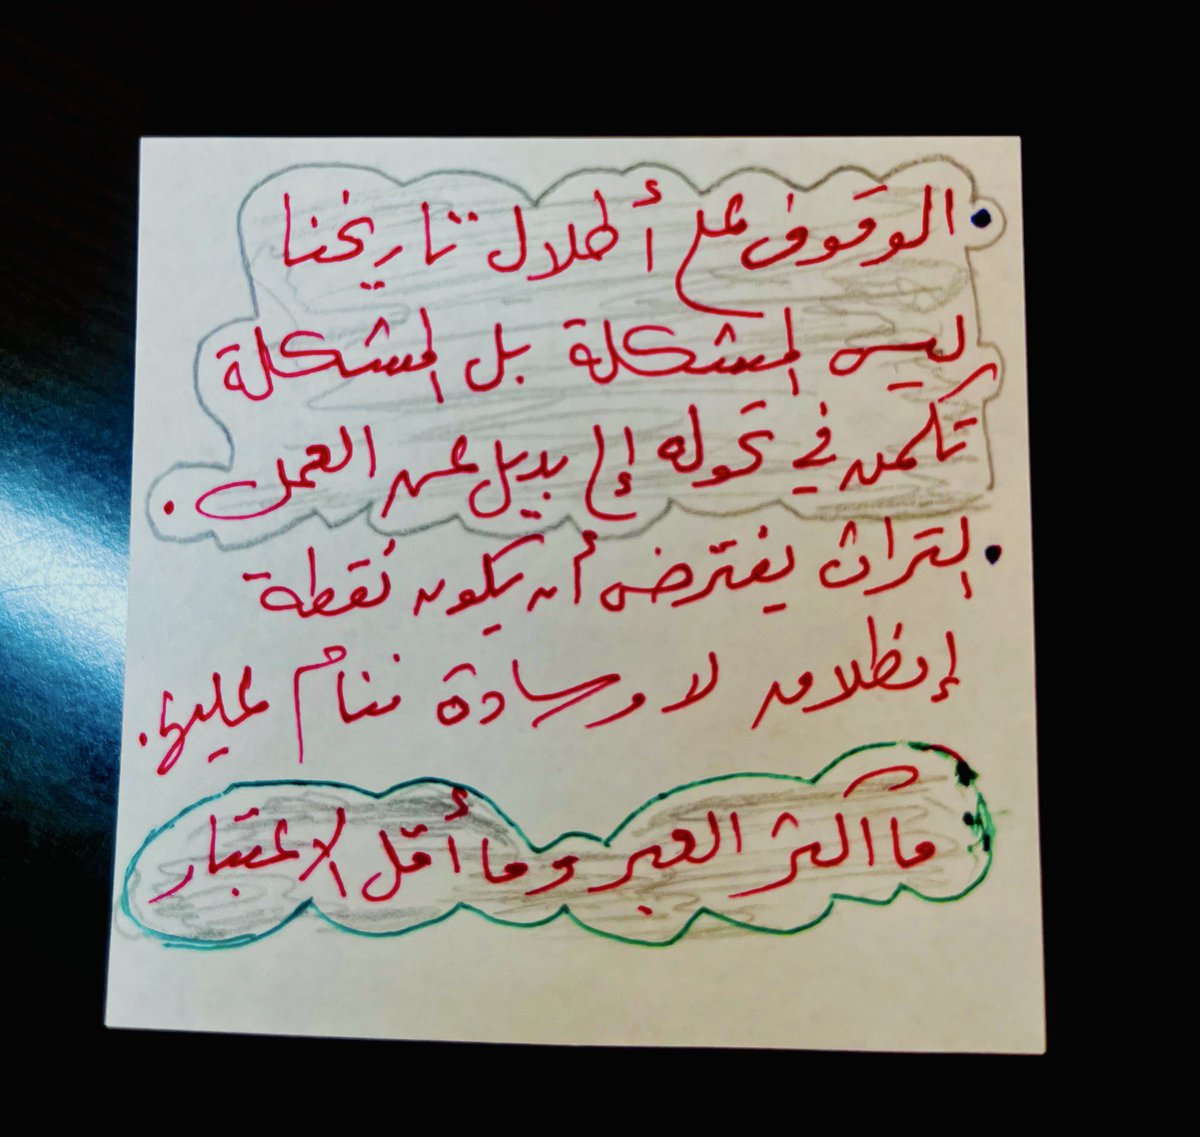 • الوقوف على أطلال تاريخنا
ليس المشكلة بل المشكلة
تكمن في تحوله إلى بديل عن العمل .
• التراث يفترض أن يكون نقطة
إنطلاق لا وسادة ننام عليها .
ما أكثر العبر وما أقل الإعتبار